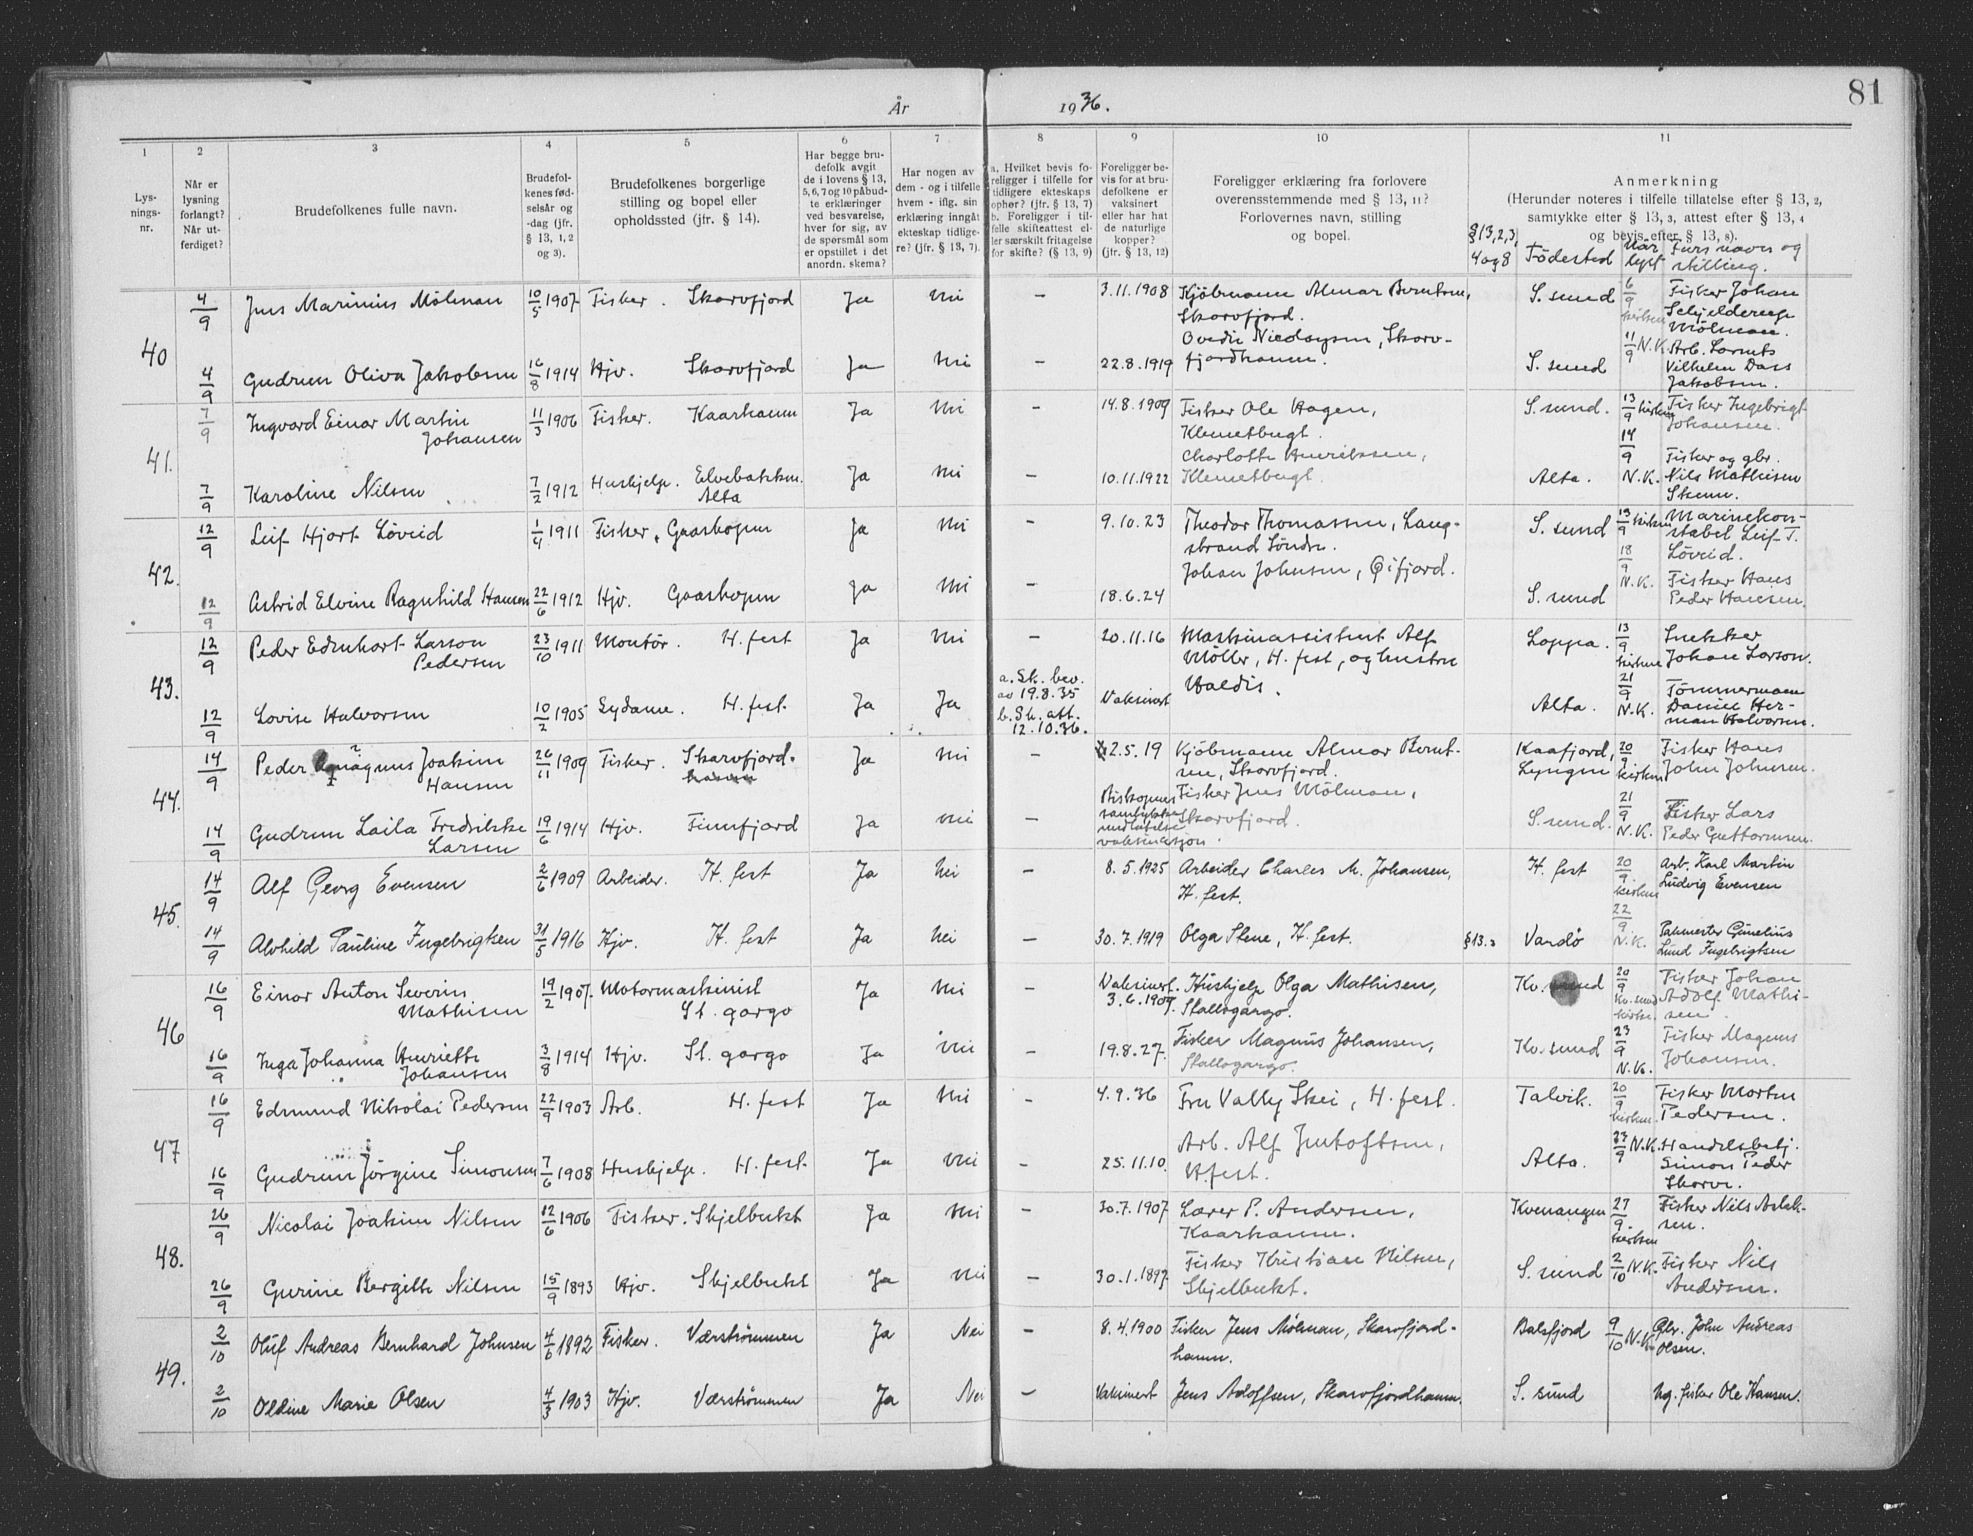 81
År 1936.
1 2 3 4 5 6 7 8 9 10 11
Lys-
nings-
nr.
Når er
lysning
forlangt?
Når ut-
ferdiget?
Brudefolkenes fulle navn.
Brudefol-
kenes fød-
selsår og
-dag (jfr.
§ 13, 1, 2
og 3).
Brudefolkenes borgerlige
stilling og bopel eller
opholdssted (jfr. § 14).
Har begge bru-
defolk avgit
de i lovens § 13,
5, 6, 7 og 10 påbud-
te erklæringer
ved besvarelse,
hver for sig, av
de spørsmål som
er opstillet i det
anordn. skema?
Har nogen av
dem - og i tilfelle
hvem - iflg. sin
erklæring inngått
ekteskap tidlige-
re? (jfr. § 13, 7).
a. Hvilket bevis fo-
religger i tilfelle for
tidligere ekteskaps
ophør? (jfr. § 13, 7)
b. Foreligger i til-
felle skifteattest el-
ler særskilt fritagelse
for skifte? (§ 13, 9)
Foreligger be-
vis for at bru-
defolkene er
vaksinert
eller har hat
de naturlige
kopper?
(jfr. § 13, 12)
Foreligger erklæring fra forlovere
overensstemmende med § 13, 11?
Forlovernes navn, stilling
og bopel.
Anmerkning
(Herunder noteres i tilfelle tillatelse efter § 13, 2,
samtykke efter § 13, 3, attest efter § 13, 4
og bevis efter § 13, 8).
§ 13,2,3,
4 og 8
Födested
Når
lyst
Fars navn og
stilling.
40
4/9 Jens Marinius Mölman 10/5 1907 Fisker. Skarvfjord Ja nei – 3.11.1908 Kjöbmann Almar Berntsen,
Skarvfjord.
S. sund 6/9 kirken Fisker Johan
Schjelderup
Mölman.
4/9 Gudrun Oliva Jakobsen 16/8 1914 Hjv. Skarvfjord Ja nei – 22.8.1919 Ovedie Nicolaysen, Skarv-
fjordhamn.
S. sund 11/9 N.K. Arb. Lornts
Vilhelm Dass
Jakobsen.
41.
7/9 Ingvard Einar Martin
Johansen 11/3 1906 Fisker. Kaarhamn Ja nei – 14.8.1909 Fisker Ole Hagen,
Klemetbugt.
S. sund. 13/9 kirken Fisker Ingebrigt
Johansen.
7/9 Karoline Nilsen 7/2 1912 Hushjelp. Elvebakken.
Alta Ja nei – 10.11.1922 Charlotte Henriksen,
Klemetbugt
Alta. 14/9 N.K. Fisker og gbr.
Nils Mathisen
42.
12/9 Leif Hjort Löveid 1/4 1911 Fisker, Gaashopen Ja nei – 9.10.23 Theodor Thomassen, Lang-
strand Söndre.
S. sund 13/9 kirken Marinekon-
stabel Leif T.
Löveid.
12/9 Astrid Elvine Ragnhild Hansen 22/6 1912 Hjv. Gaashopen Ja nei – 18.6.24 Johan Johnsen, Öifjord.
S. sund 18/9 N.K. Fisker Hans
Peder Hansen.
43.
12/9 Peder Edenhart Larson
Pedersen 23/10 1911 Montör. H.fest Ja nei – 20.11.16 Maskinassistent Alf
Möller, H.fest, og hustru
Valdis.
Loppa. 13/9 kirken Snekker
Johan Larson.
12/9 Lovise Halvorsen 10/2 1905 Sydame. H.fest. Ja Ja a. Sk. bev.
av 19.8.35
b. Sk. att.
12.10.36. Vaksinert
Alta. 21/9 N.K. Tömmermann
Daniel Her-
man Halvorsen.
44.
14/9 Peder Magnus Joakim
Hansen 26/11 1909 Fisker. Skarvfjord.
hamn Ja nei – 2.5.19 Kjöbmann Almar Bernt-
sen, Skarvfjord.
Kaafjord,
Lyngen 20/9 kirken Fisker Hans
John Johnsen.
14/9 Gudrun Laila Fredrikke
Larsen 19/6 1914 Hjv. Finnfjord Ja nei – Biskopens
samtykke
vaksinasjon. Fisker Jens Mölman,
Skarvfjord.
S. sund. 21/9 N.K. Fisker Lars
Peder Guttormsen.
45.
14/9 Alf Georg Evensen 2/6 1909 Arbeider. H.fest Ja Nei – 8.5.1925 Arbeider Charles M. Johansen,
H.fest.
H.fest 20/9. kirken Arb. Karl Martin
Ludvig Evensen
14/9 Alvhild Pauline Ingebrigtsen 31/5 1916 Hjv. H.fest Ja Nei – 30.7.1919 Olga Stene, H.fest. § 13.3 Vardö 22/9 N.K. Pakmester Cunelius
Lund Ingebrigtsen
46
16/9 Einar Anton Severin
Mathisen 19/2 1907. Motormaskinist
St. gargo Ja nei – Vaksinert.
3.6.1909. Hushjelp Olga Mathisen,
Stallogargo.
Kv. sund 20/9 Kv.sund kirke. Fisker Johan
Adolf Mathi-
sen.
16/9 Inga Johanna Henriette
Johansen 3/8 1914 Hjv. St. gargo Ja nei – 19.8.27. Fisker Magnus Johansen,
Stallogargo.
Kv. sund 23/9 N.K. Fisker Magnus
Johansen.
47
16/9 Edmund Nikolai Pedersen 22/9 1903 Arb. H.fest Ja nei – 4.9.36 Fru Vally Skei, H.fest.
Talvik. 20/9 kirken Fisker Morten
Pedersen.
16/9 Gudrun Jörgine Simonsen 7/6 1908 Hushjelp. H.fest. Ja nei – 25.11.10. Arb. Alf Justoftsen,
H.fest.
Alta. 23/9 N.K. Handelsbetj.
Simon Peder
48.
26/9 Nicolai Joakim Nilsen 12/6 1906 Fisker. Skjelbukt Ja nei – 30.7.1907 Lærer P. Andersen,
Kaarhamn.
Kvenangen 27/9. kirken Fisker Nils Aslak-
sen.
26/9 Gurine Bergitte Nilsen 15/9 1893 Hjv. Skjelbukt Ja nei – 30.1.1897. Fisker Kristian Nilsen,
Skjelbukt.
S. sund 2/10 N.K. Fisker Nils
Andersen.
49.
2/10 Oluf Andreas Bernhard Johnsen 4/6 1892 Fisker. Værströmmen Ja Nei – 8.4.1900 Fisker Jens Mölman, Skarvfjord-
hamn.
Balsfjord 9/10 N.K. Gbr. John Andreas
Olsen.
2/10 Oldine Marie Olsen 4/3 1903 Hjv. Værströmmen Ja Nei – Vaksinert Jens Adolfsen, Skarvfjordhamn.
S. sund Ug. fisker Ole Hansen.